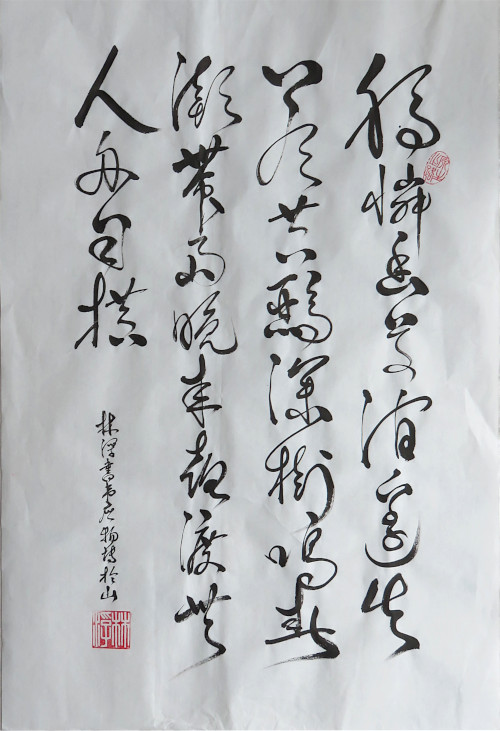 獨憐幽草澗邊生
上有黃鸝深樹鳴春
潮帶雨晚來渡無
人舟自橫
林書韋應物詩於山
林